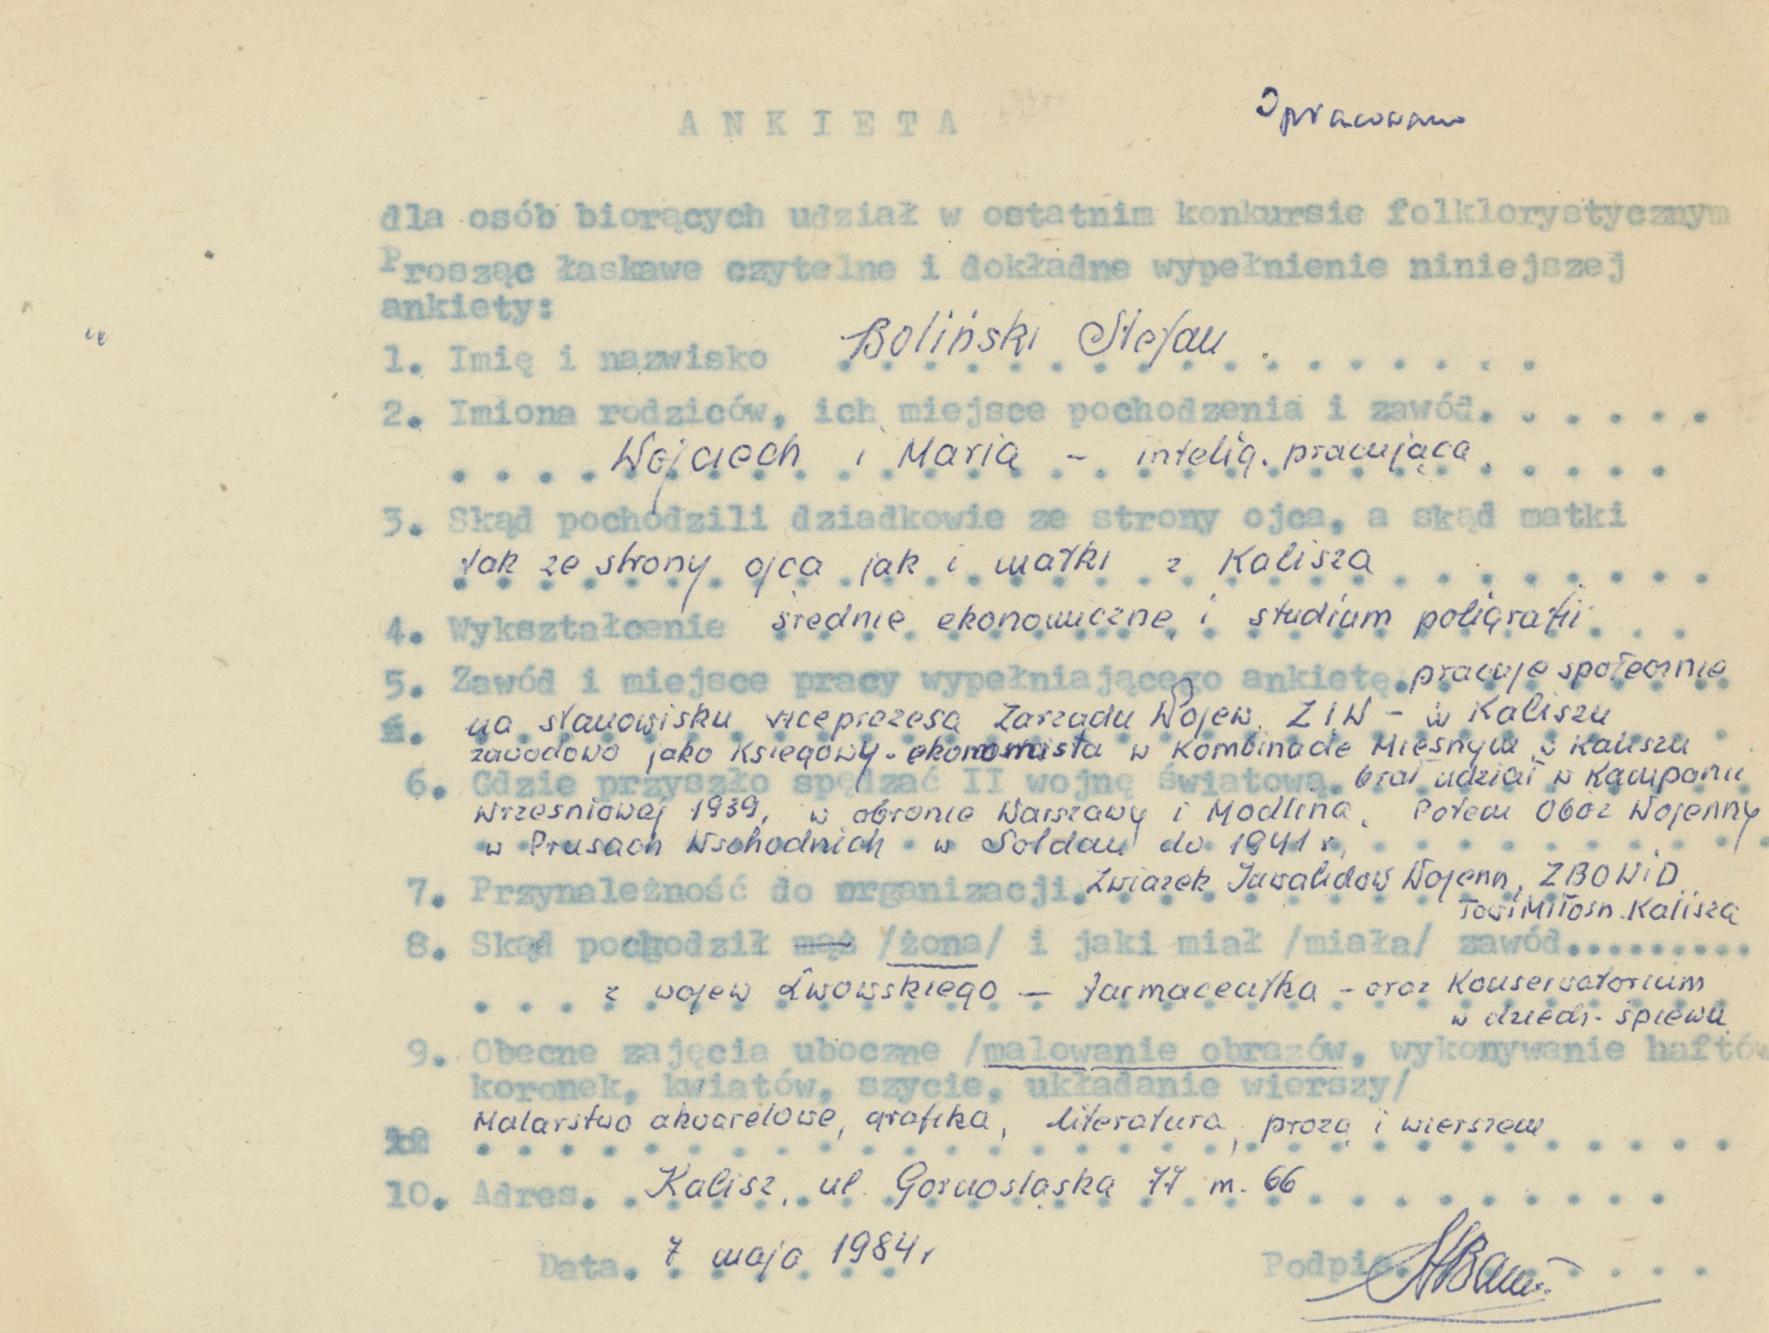 ANKIETA
Opracowano
dla osób biorących udział w ostatnim konkursie folklorystycznym
Prosząc łaskawe czytelne i dokładne wypełnienie niniejszej
ankiety:
1. Imię i nazwisko Boliński Stefan
2. Imiona rodziców, ich miejsce pochodzenia i zawód.
Wojciech i Maria - intelig. pracująca
3. Skąd pochodzili dziadkowie ze strony ojca, a skąd matki
tak ze strony ojca jak i matki z Kalisza
4. Wykształcenie średnie ekonomiczne i studium poligrafii
5. Zawód i miejsce pracy wypełniającego ankietę. pracuje społecznie
na stanowisku viceprezesa Zarządu Wojew. ZIW - w Kaliszu
zawodowo jako Księgowy-ekonomista w Kombinacie Mięsnym w Kaliszu
6. Gdzie przyszło spędzać II wojnę światową. brał udział w Kampanii
Wrześniowej 1939, w obronie Warszawy i Modlina. Potem Obóz Wojenny
w Prusach Wschodnich w Soldau do 1941 r.
7. Przynależność do organizacji. Związek Inwalidów Wojenn, ZBOWiD
Tow. Miłośn. Kalisza
8. Skąd pochodził mąż /żona/ i jaki miał /miała/ zawód.........
z wojew Lwowskiego - farmaceutka - oraz Konserwatorium
w dziedz. śpiewu
9. Obecne zajęcia uboczne /malowanie obrazów, wykonywanie haftów
koronek, kwiatów, szycie, układanie wierszy/
Malarstwo akwarelowe, grafika, literatura, prozą i wierszem
10. Adres. Kalisz, ul. Górnośląska 77 m. 66
Data. 7 maja 1984 r
Podpis.